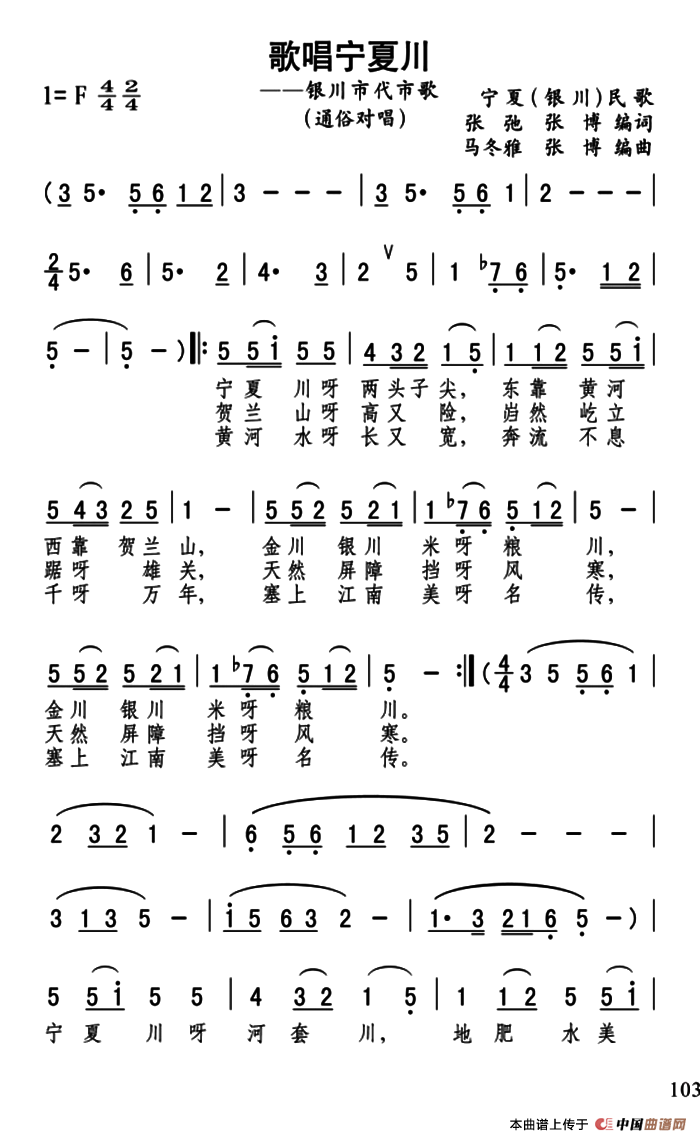 歌唱宁夏川
——银川市代市歌
(通俗对唱)
1= F 4/4 2/4
宁夏(银川)民歌
张弛 张博编词
马冬雅 张博编曲
(3 5· 5 6 1 2 | 3 - - - | 3 5· 5 6 1 | 2 - - - |
2/4 5· 6 | 5· 2 | 4· 3 | 2 ∨ 5 | 1 ♭7 6 | 5· 1 2 |
5 - | 5 - ) ‖: 5 5 i 5 5 | 4 3 2 1 5 | 1 1 2 5 5 i |
宁夏 川呀 两头子尖, 东靠 黄河
贺兰 山呀 高又 险, 岿然 屹立
黄河 水呀 长又 宽, 奔流 不息
5 4 3 2 5 | 1 - | 5 5 2 5 2 1 | 1 ♭7 6 5 1 2 | 5 - |
西靠 贺兰 山, 金川 银川 米呀 粮 川,
踞呀 雄 关, 天然 屏障 挡呀 风 寒,
千呀 万 年, 塞上 江南 美呀 名 传,
5 5 2 5 2 1 | 1 ♭7 6 5 1 2 | 5 - :‖ (4/4 3 5 5 6 1 |
金川 银川 米呀 粮 川。
天然 屏障 挡呀 风 寒。
塞上 江南 美呀 名 传。
2 3 2 1 - | 6 5 6 1 2 3 5 | 2 - - - |
3 1 3 5 - | i 5 6 3 2 - | 1· 3 2 1 6 5 - ) |
5 5 i 5 5 | 4 3 2 1 5 | 1 1 2 5 5 i |
宁 夏 川 呀 河 套 川, 地 肥 水 美
103
本曲谱上传于 中国曲谱网